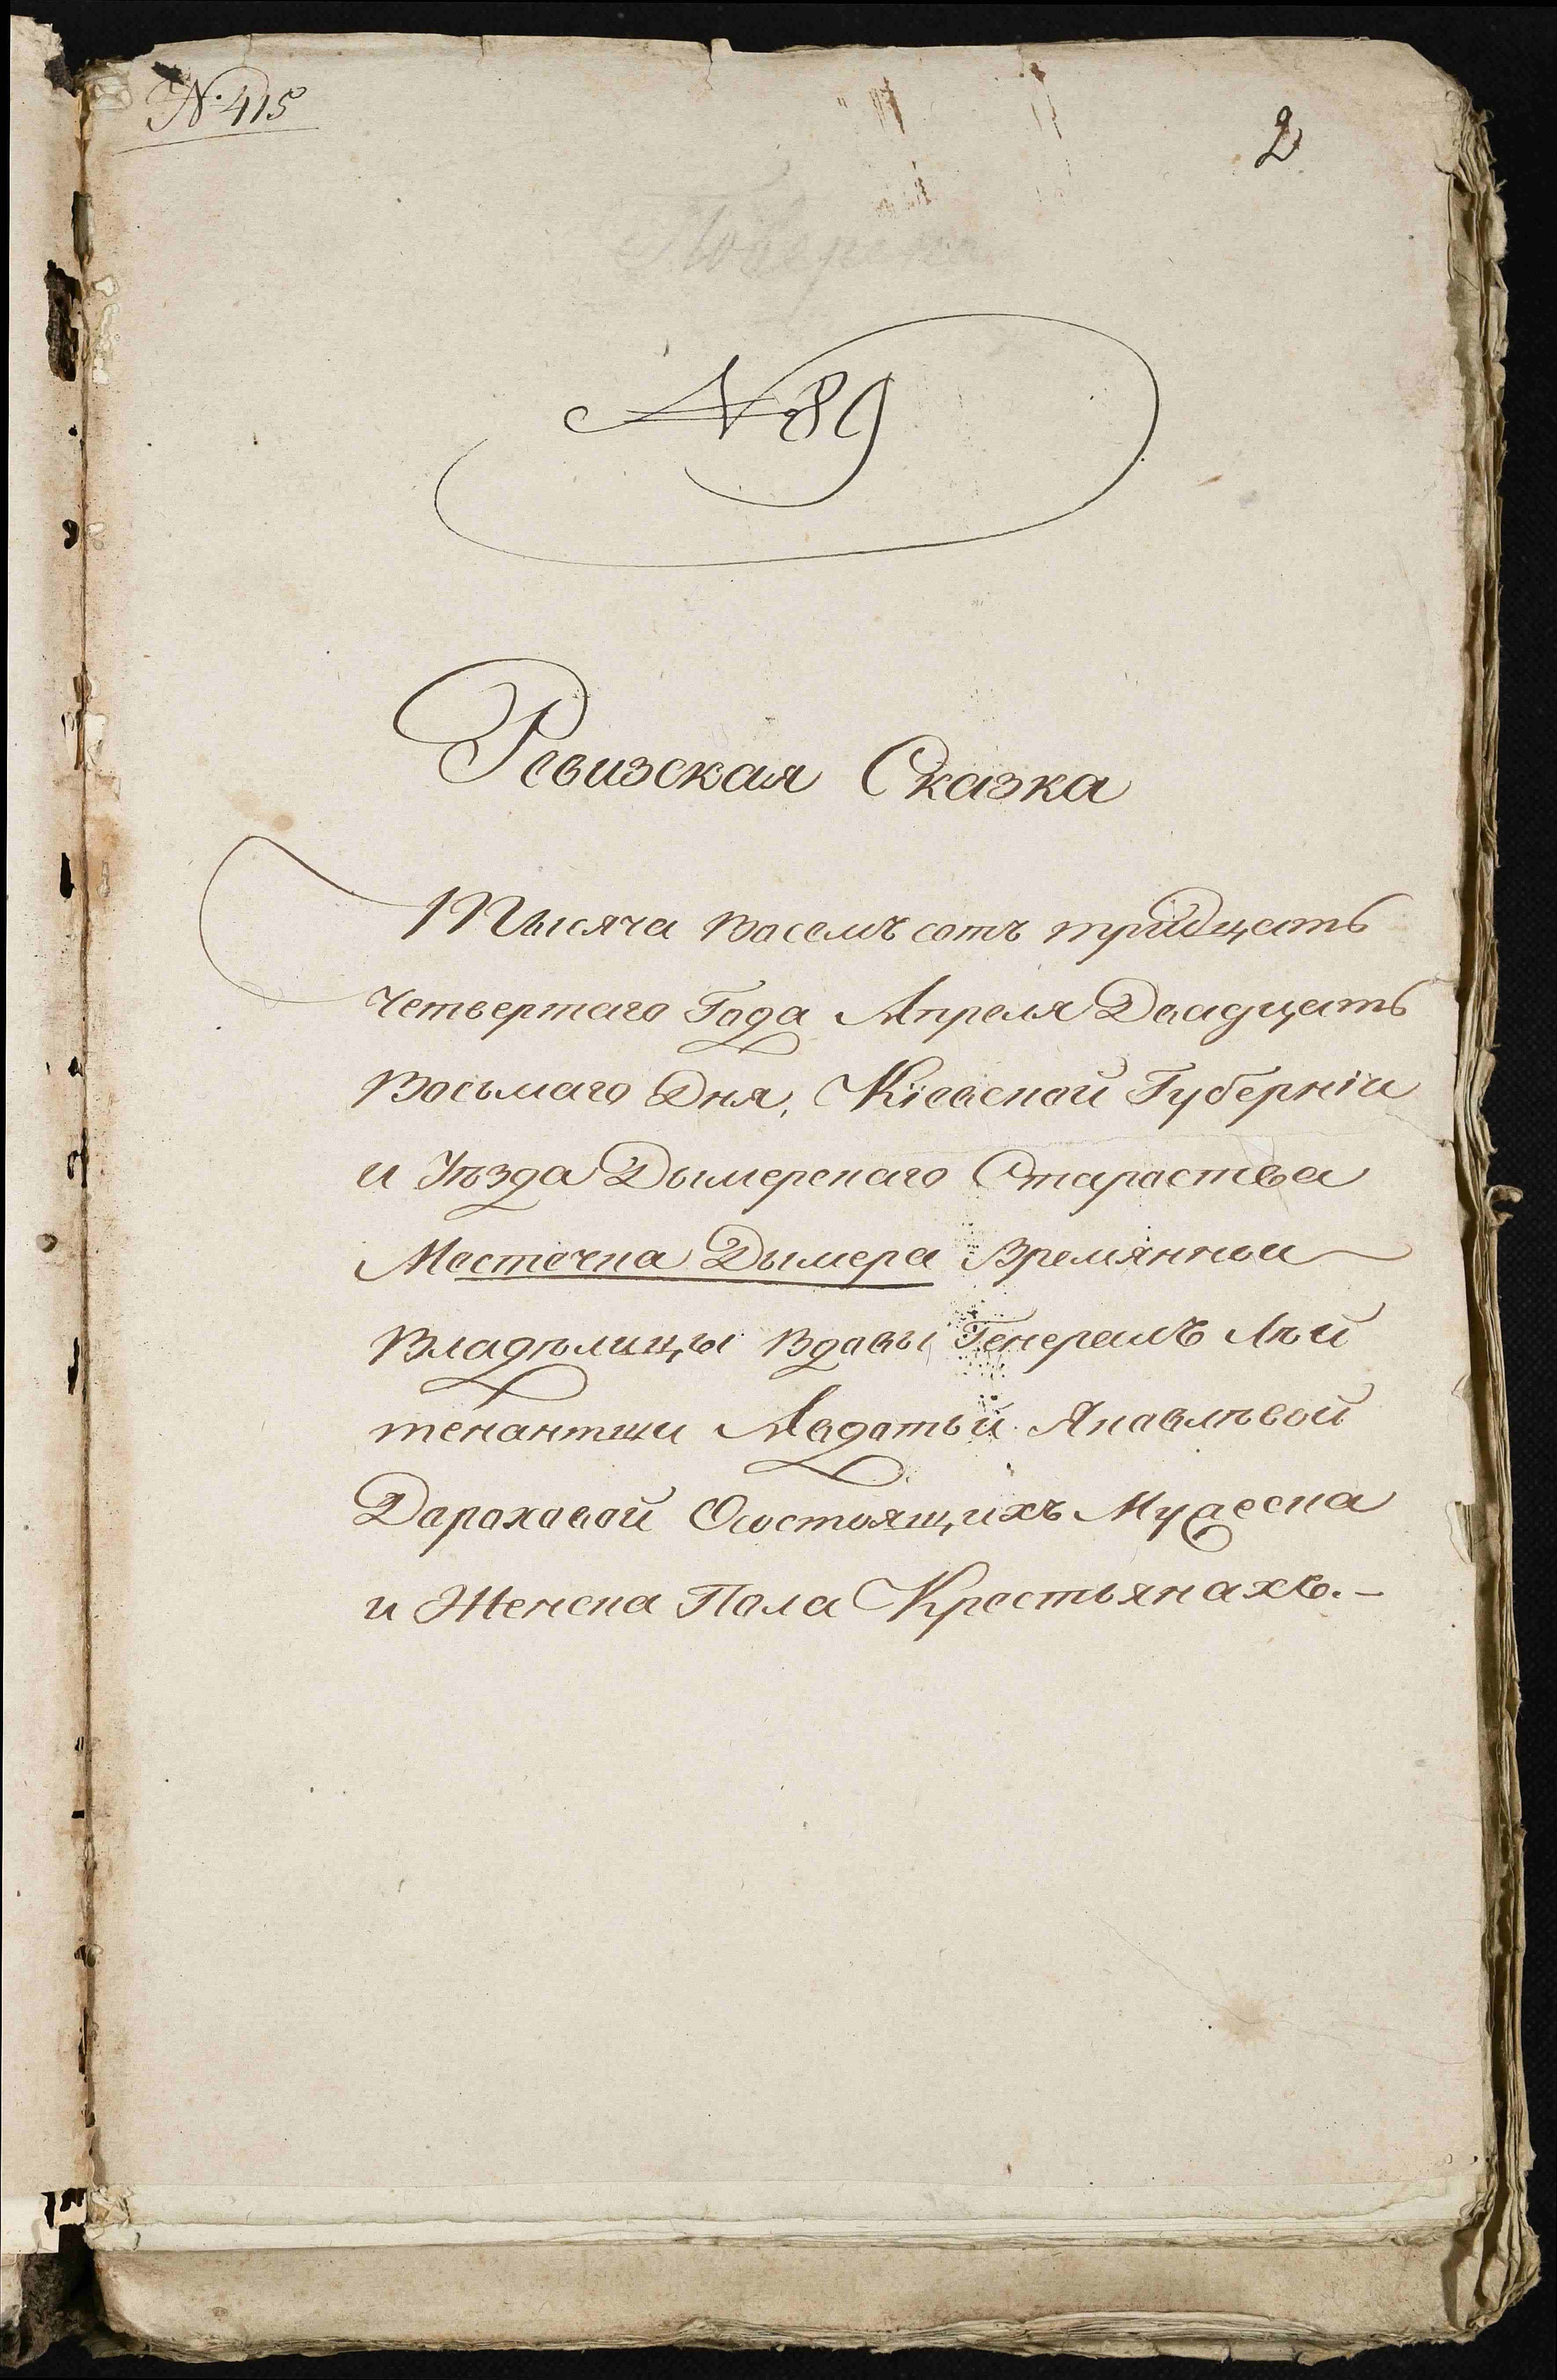 N. 415
2
Поверена
N 89
Ревизская Сказка
Тысяча Восемъ сотъ тридцать
Четвертаго Года Апреля Двадцать
Восьмаго Дня, Кіевской Губерніи
и Уѣзда Дымерскаго Староства
Местечка Дымера Времянной
Владѣлицы Вдовы Генералъ Лѣй
тенантши Авдотьи Яковлѣвой
Дороховой О состоящихъ Мужеска
и Женска Пола Крестьянахъ.-